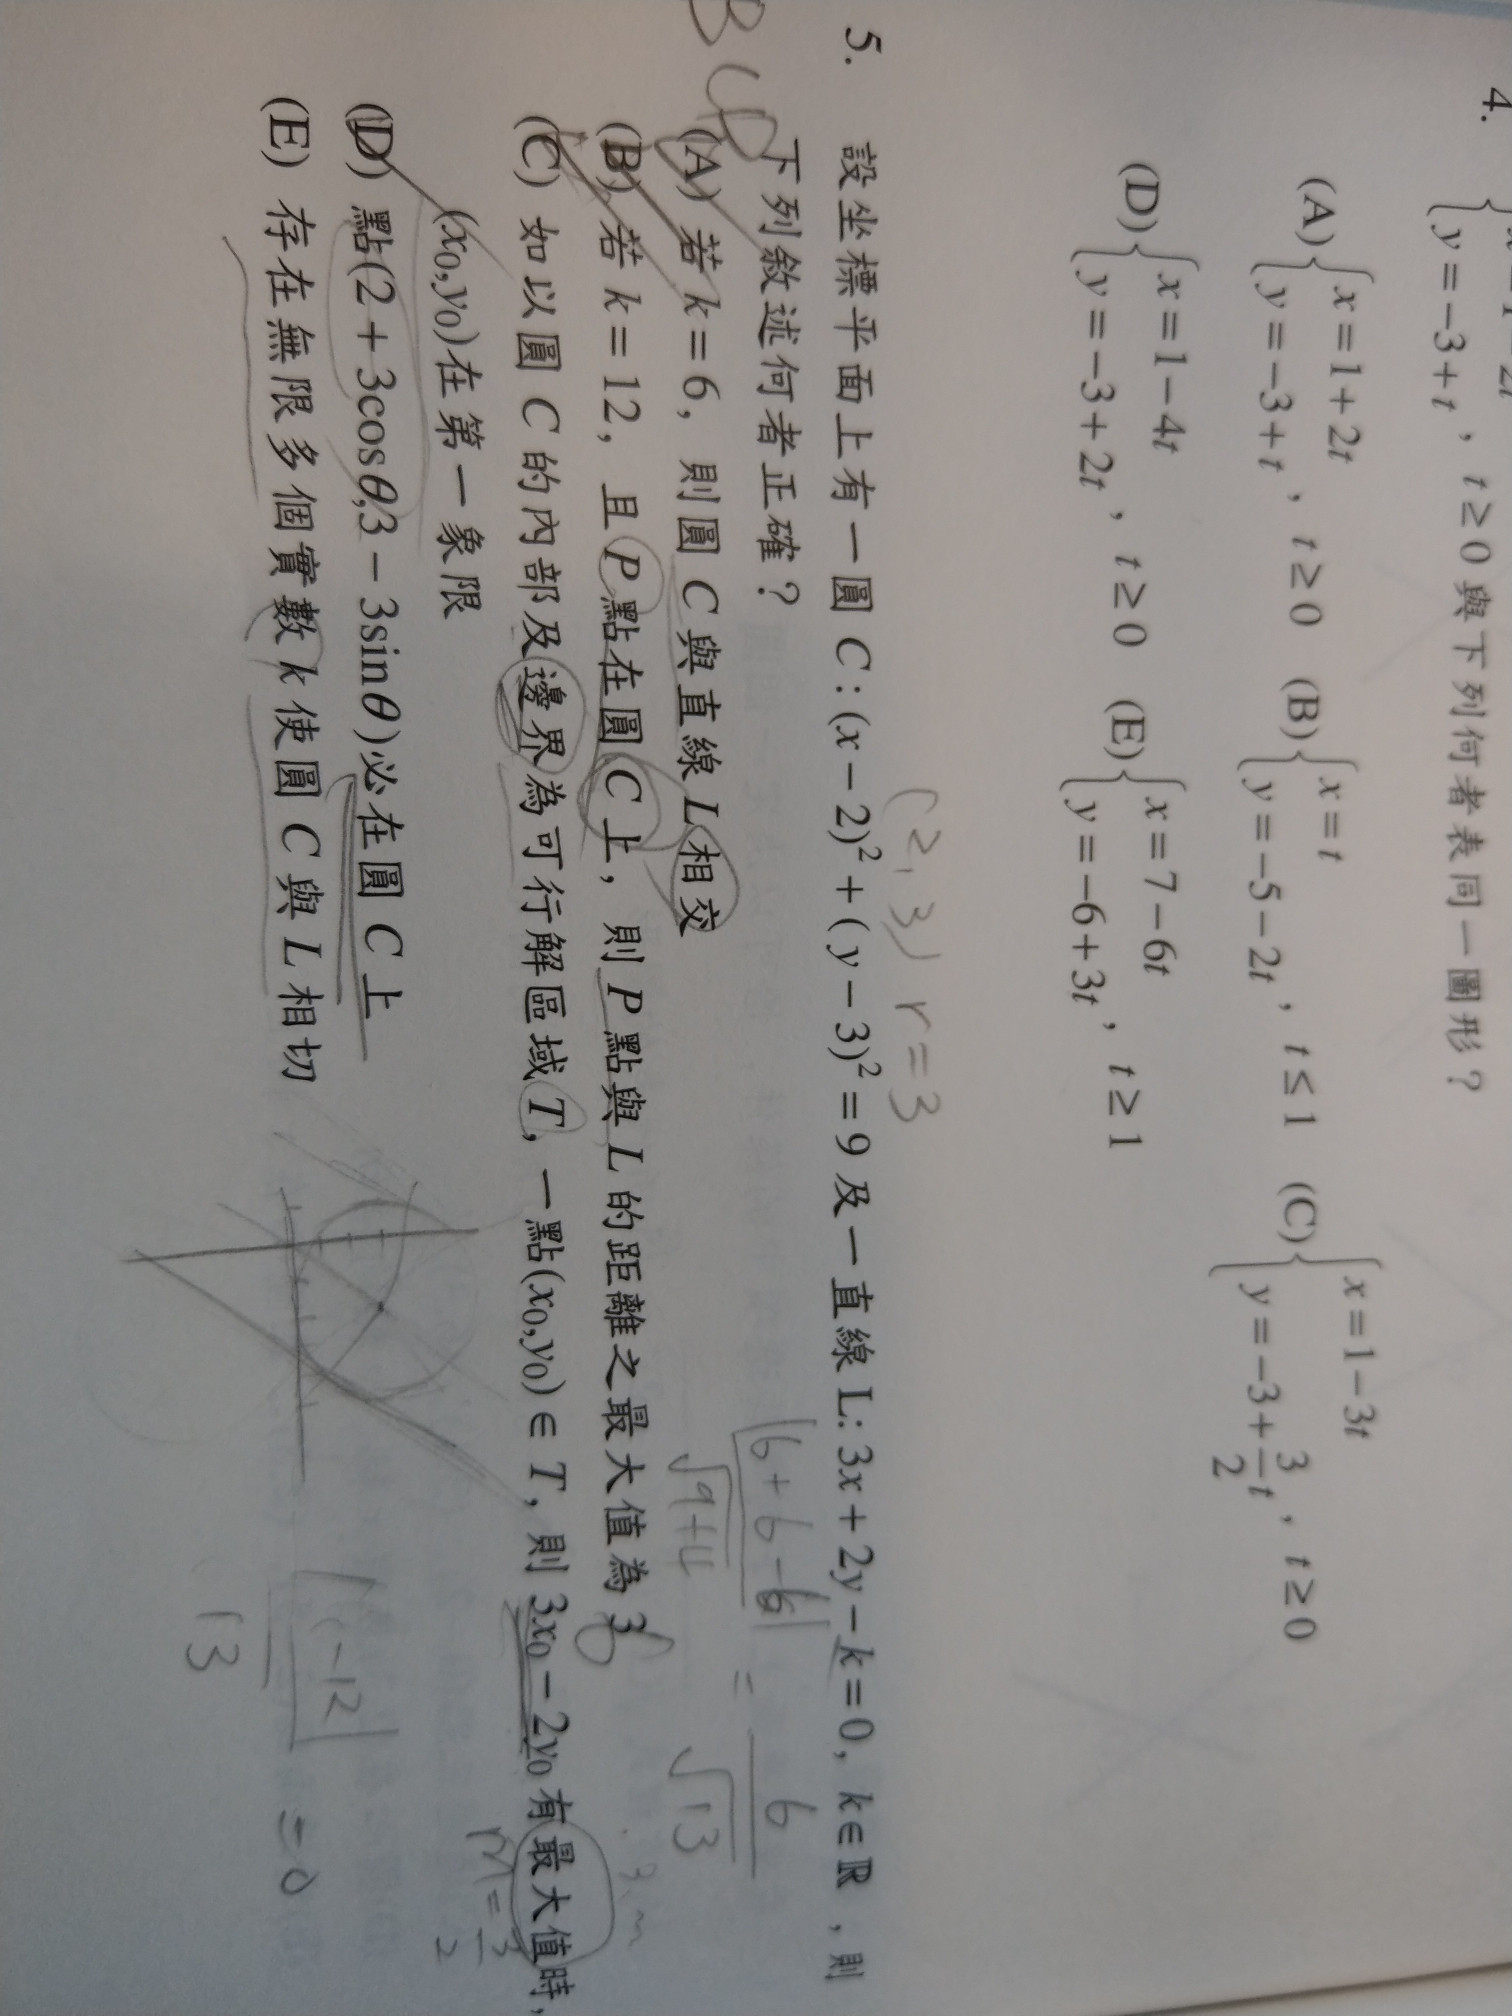 4.
y=-3+t，t≥0與下列何者表同一圖形？
(A){x=1+2t
y=-3+t，t≥0 (B){x=t
y=-5-2t，t≤1 (C){x=1-3t
y=-3+3/2t，t≥0
(D){x=1-4t
y=-3+2t，t≥0 (E){x=7-6t
y=-6+3t，t≥1
(2,3) r=3
5. 設坐標平面上有一圓 C:(x-2)²+(y-3)²=9 及一直線 L: 3x+2y-k=0, k∈ℝ，則
下列敘述何者正確？
|6+6-6|/√9+4 = 6/√13
BCD
(A) 若 k=6, 則圓 C 與直線 L 相交
(B) 若 k=12, 且 P 點在圓 C 上, 則 P 點與 L 的距離之最大值為 3
(C) 如以圓 C 的內部及邊界為可行解區域 T, 一點(x₀,y₀)∈T, 則 3x₀-2y₀ 有最大值時,
(x₀,y₀)在第一象限
m=3/2
(D) 點(2+3cosθ,3-3sinθ)必在圓 C 上
(E) 存在無限多個實數 k 使圓 C 與 L 相切
13
=0